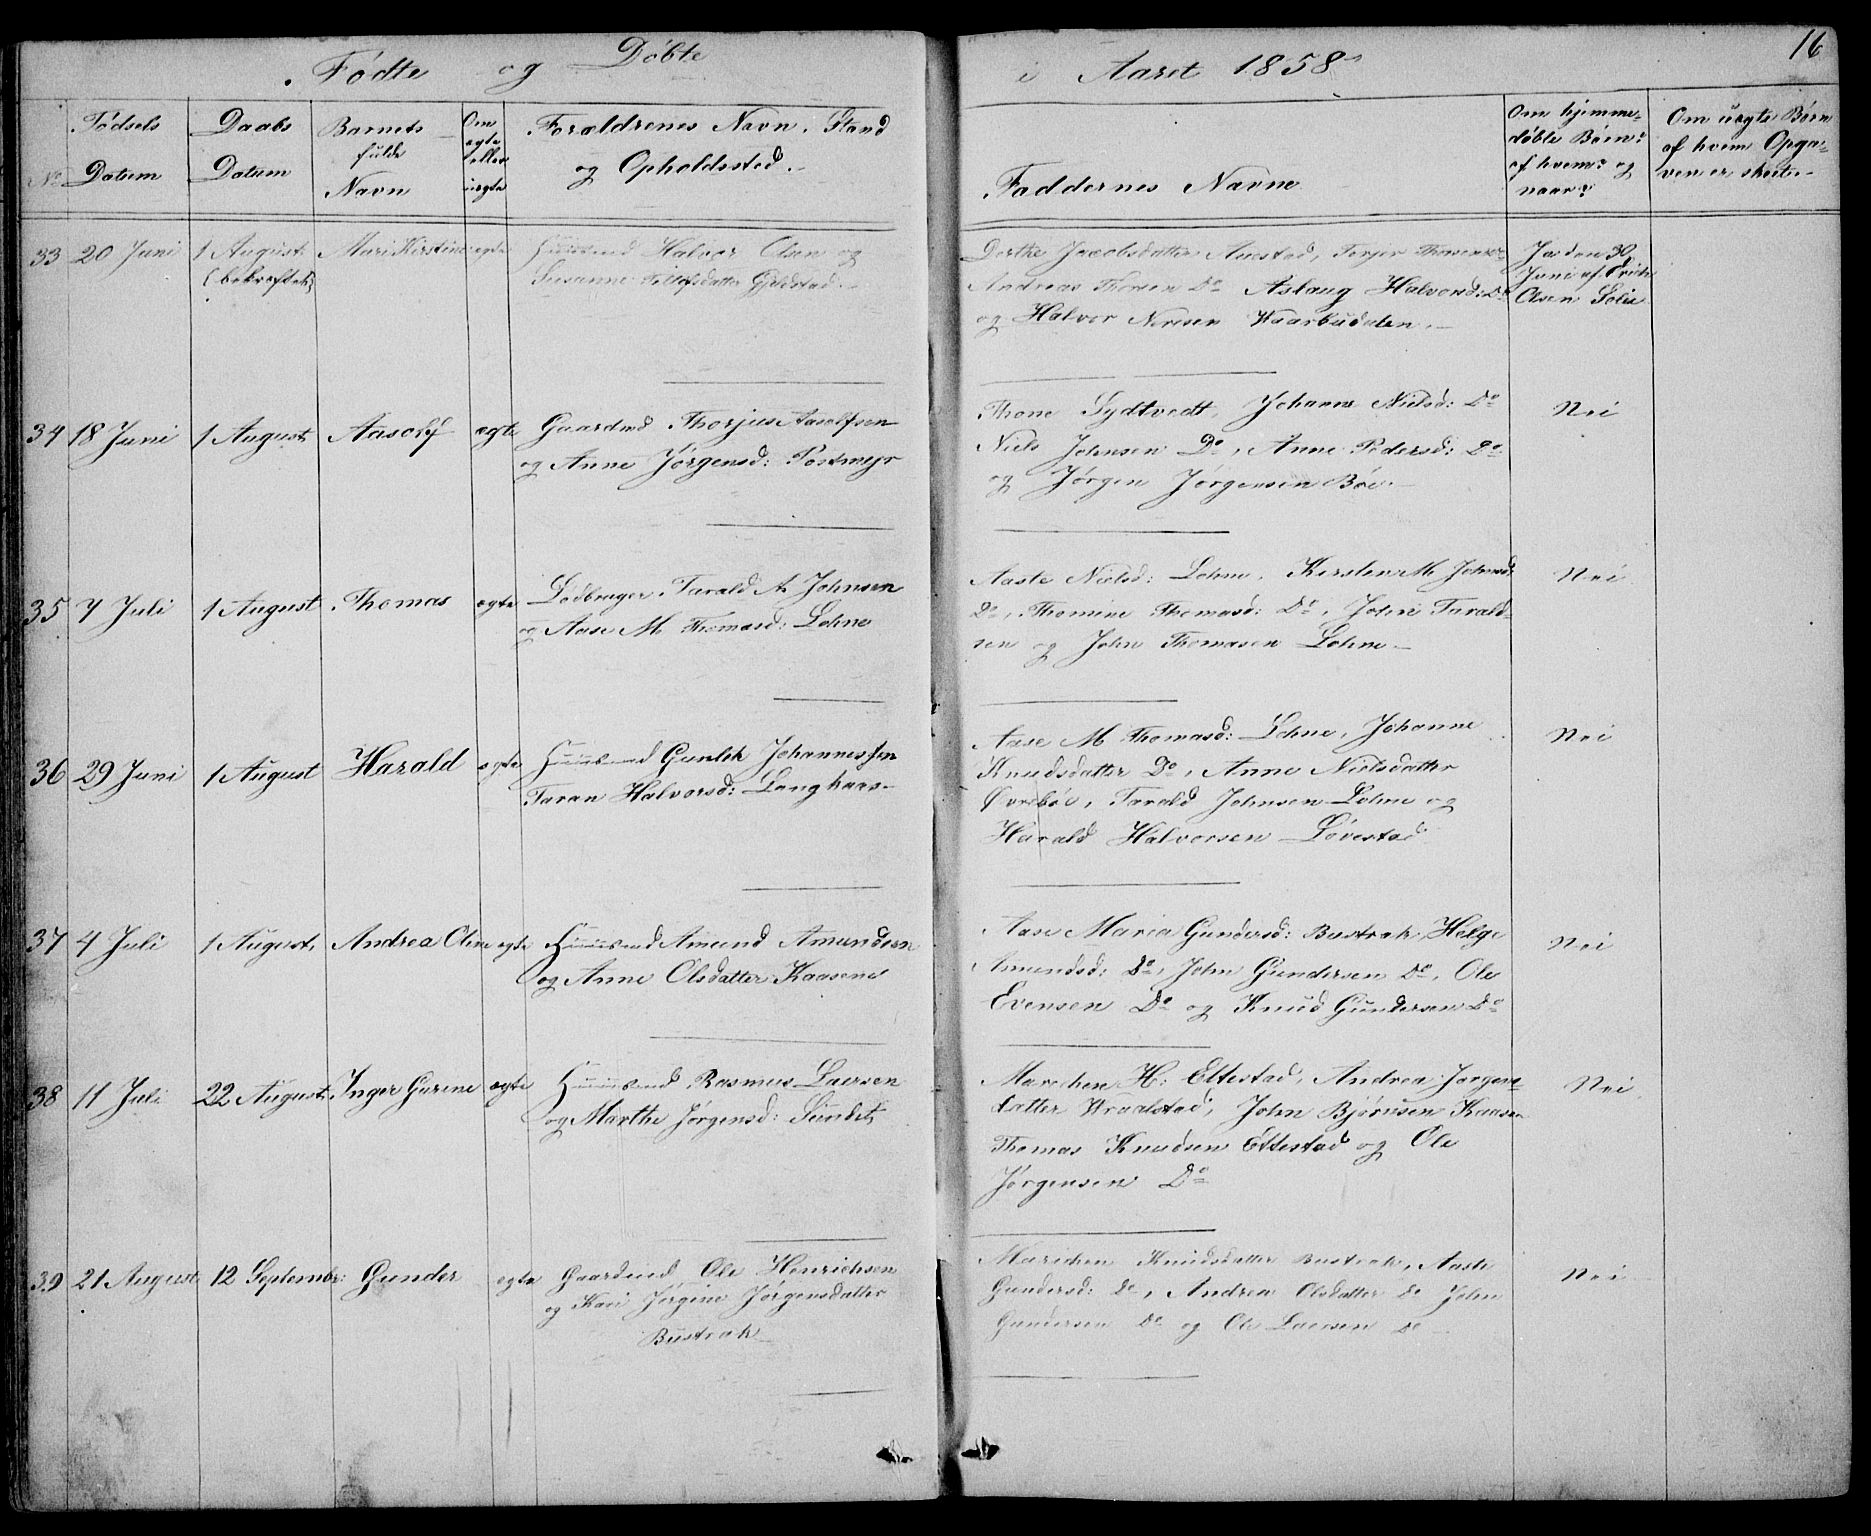 Fødte og Døbte i Aaret 1858
16
No
Fødsels Datum
Daabs Datum
Barnets fulde Navn
Om ægte eller uægte
Forældrenes Navn, Stand og Opholdssted.
Faddernes Navne
Om hjemmedøbte Børn? af hvem? og naar?
Om uægte Børn af hvem Opgaven er skeet
33 20 Juni 1 August (bekræftet) Mari Kirstine ægte
Huusmd Halvor Olsen og
Susanne
Dorthe Jacobsdatter Auestad, Terjer Thorsen
Andreas Thorsen Do Aslaug Halvorsd: Do
og Halvor Nersen Waarbudalen.
Ja den 30
Juni af
Olsen Solie
34 18 Juni 1 August Aasold ægte
Gaardmd Thorjus Aasolfsen
og Anne Jørgensd: Postmyr
Thone Sydtvedt, Johanne Nielsd: Do
Niels Johnsen Do, Anne Pedersd: Do
og Jørgen Jørgensen Bøe.
Nei
35 7 Juli 1 August Thomas ægte
Lodbruger Tarald A Johnsen
og Aase M Thomasd: Lohne
Aaste Nielsd: Lohne, Kirsten M Johnsd:
Do, Thomine Thomasd: Do, John Tarald-
sen og John Thomasen Lohne
Nei
36 29 Juni 1 August Harald ægte
Huusmd Gunlek Johannessen
Taran Halvorsd: Langkaas
Aase M Thomasd: Lohne, Johanne
Knudsdatter Do, Anne Nielsdatter
Øvrebøe, Tarald Johnsen Lohne og
Harald Halvorsen Løvestad
Nei
37 4 Juli 1 August Andrea Oline ægte
Huusmd Amund Amundsen
og Anne Olsdatter Kaasene
Aase Maria Gundersd: Bustrak, Helge
Amundsd: Do, John Gundersen Do, Ole
Evensen Do og Knud Gundersen Do
Nei
38 11 Juli 22 August Inger Gurine ægte
Huusmd Rasmus Larsen
og Marthe Jørgensd: Sundet
Marichen H: Ettestad, Andrea Jørgens-
datter Wraalstad, John Bjørnsen Kaasen
Thomas Knudsen Ettestad og Ole
Jørgensen Do
Nei
39 21 August 12 Septembr: Gunder ægte
Gaardmd Ole Henrichsen
og Kari Jørgine Jørgensdatter
Bustrak
Marichen Knudsdatter Bustrak, Aaste
Gundersd: Do, Andrea Olsdatter Do John
Gundersen Do og Ole Larsen Do
Nei